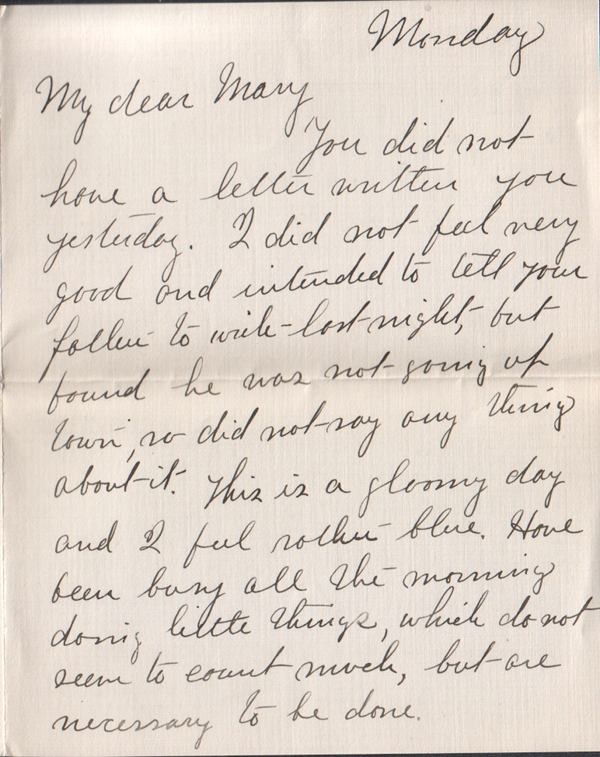 Monday
My dear Mary
You did not
have a letter written you
yesterday. I did not feel very
good and intended to tell your
father to write last night, but
found he was not going up
town, so did not say any thing
about it. This is a gloomy day
and I feel rather blue. Have
been busy all the morning
doing little things, which do not
seem to count much, but are
necessary to be done.